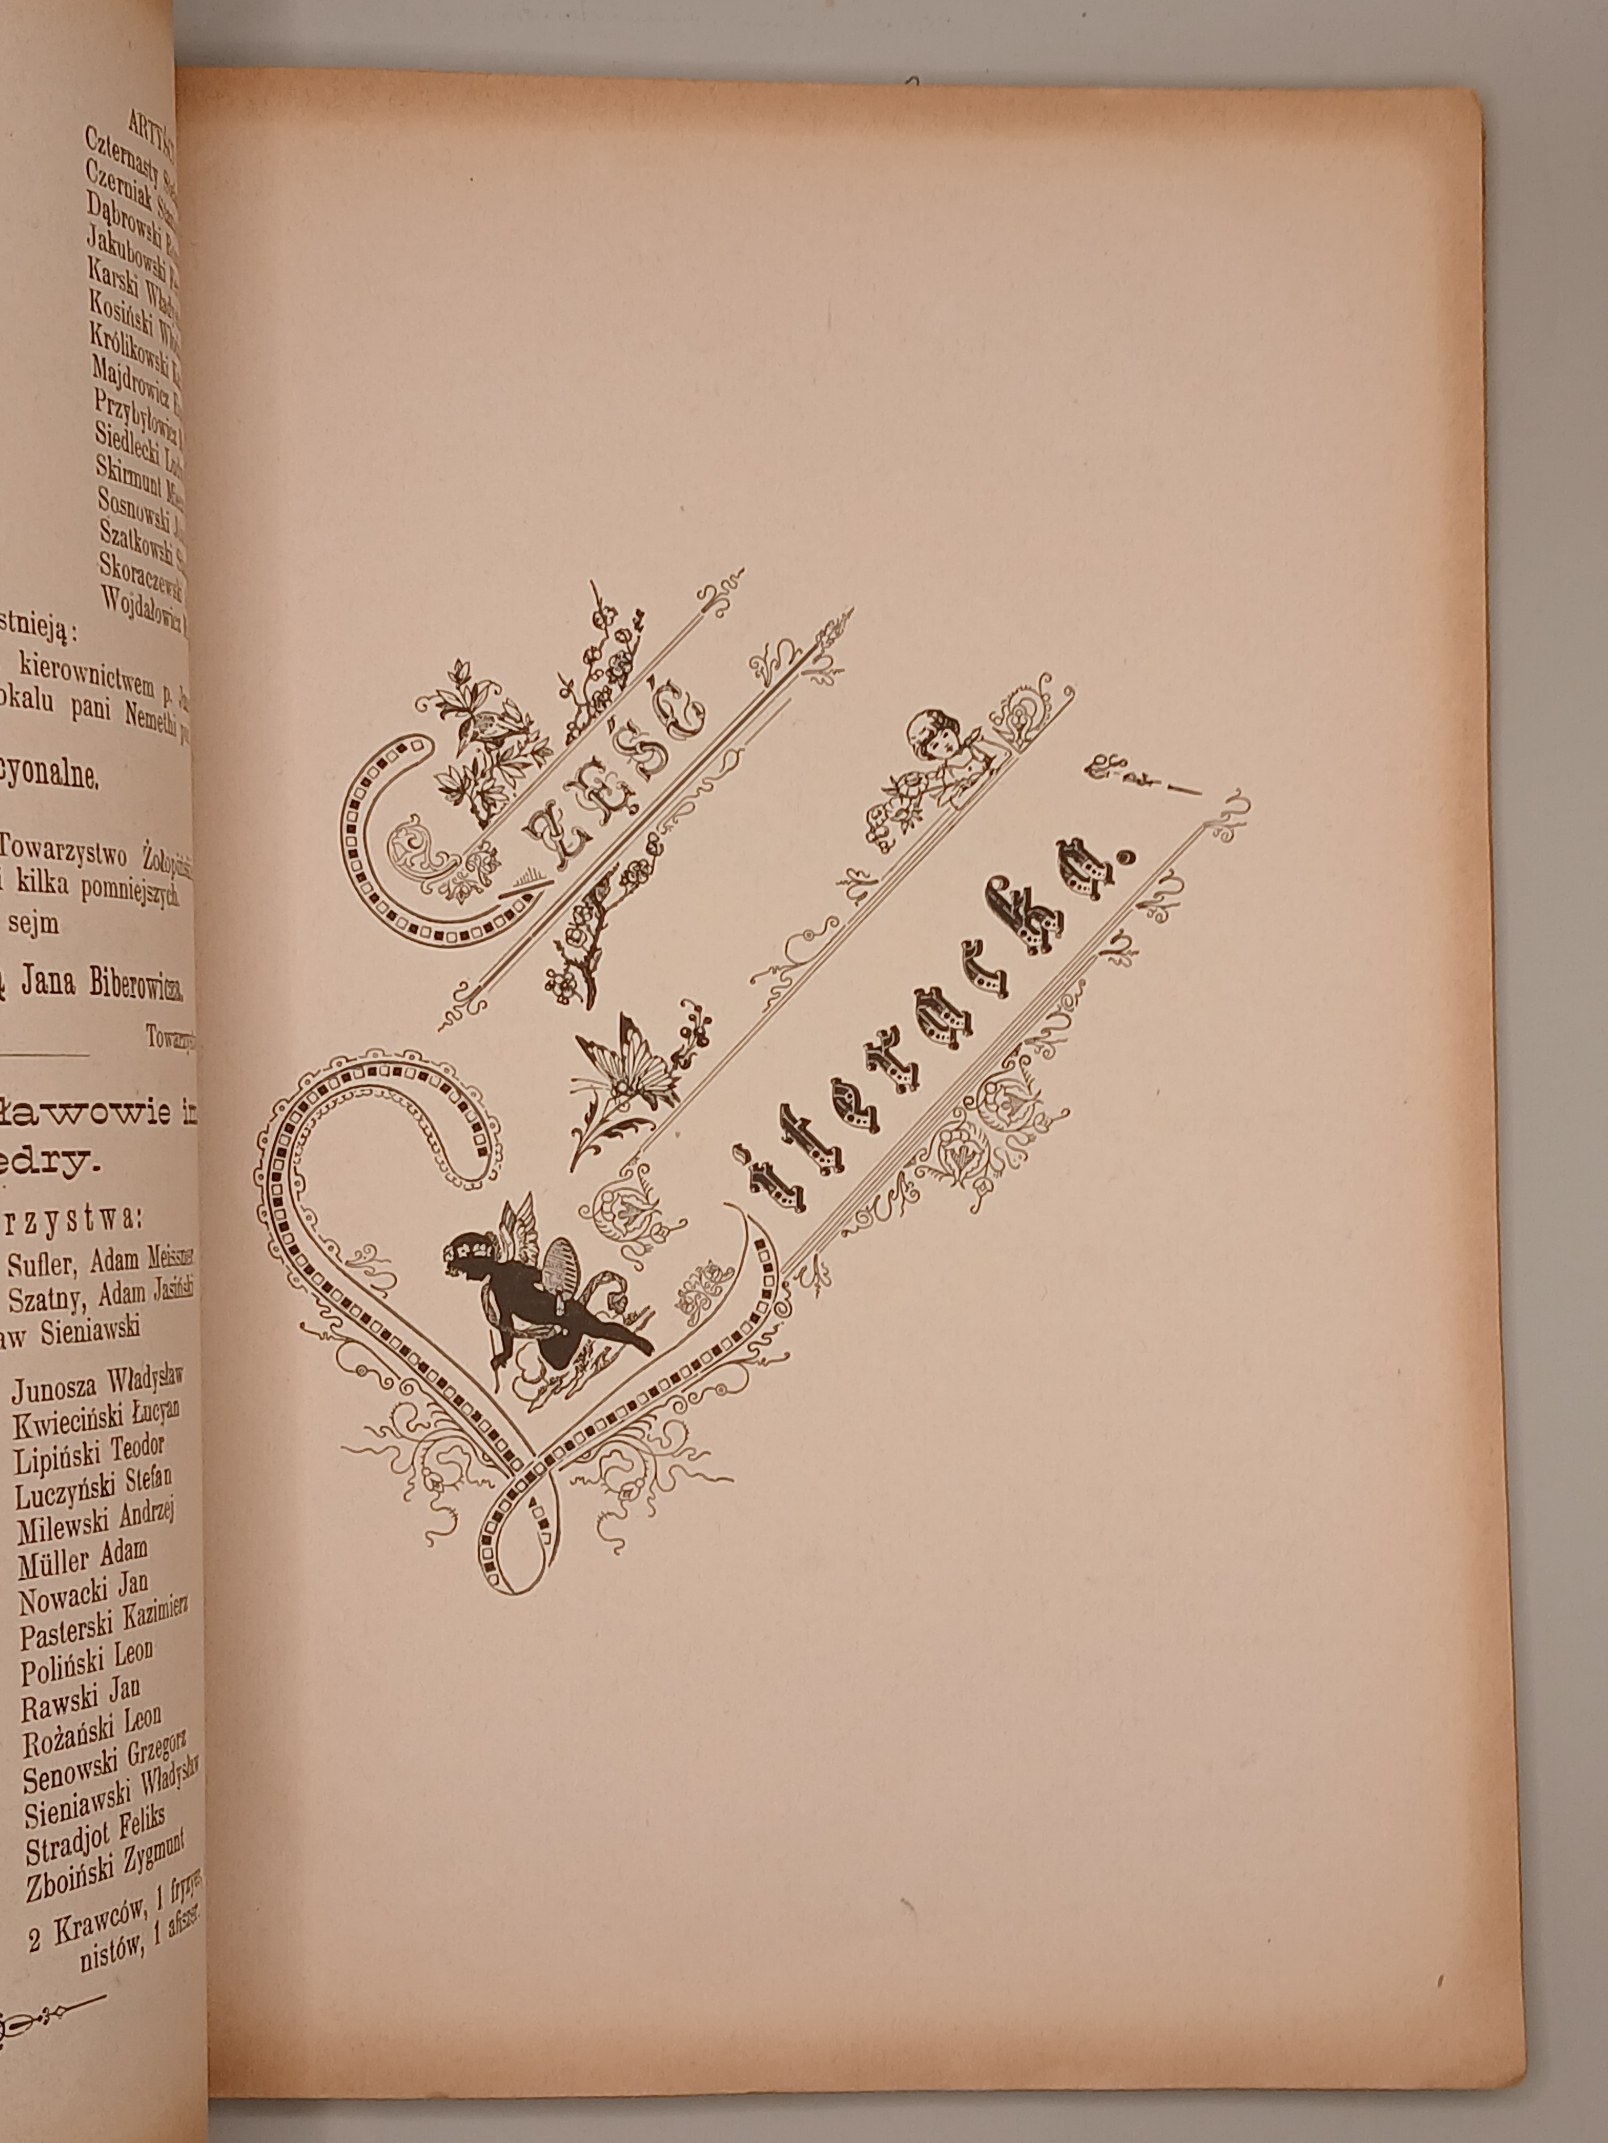 Czternasty
Czerniak
Dąbrowski
Jakubowski
Karski
Kosiński
Królikowski
Majdrowicz
Przybyłowicz
Siedlecki
Skirmunt
Sosnowski
Szatkowski
Skoraczewski
Wojdałowicz
stnieją:
kierownictwem p.
okalu pani Nemethi
cyonalne.
Towarzystwo
i kilka pomniejszych.
sejm
ą Jana Biberowicza.
Towarzys
ławowie im
edry.
rzystwa:
Sufler, Adam Meissner
Szatny, Adam Jasiński
aw Sieniawski
Junosza Władysław
Kwieciński Łucyan
Lipiński Teodor
Luczyński Stefan
Milewski Andrzej
Müller Adam
Nowacki Jan
Pasterski Kazimierz
Poliński Leon
Rawski Jan
Rożański Leon
Senowski Grzegorz
Sieniawski Władysław
Stradjot Feliks
Zboiński Zygmunt
2 Krawców, 1 fryzyer,
nistów, 1 afiszer.
CZĘŚĆ
Literacka.